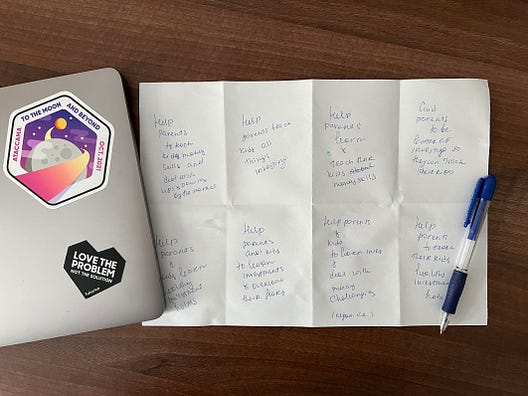 ATACCAMA
TO THE MOON
AND BEYOND
OCT. 2021
LOVE THE
PROBLEM
NOT THE SOLUTION
Help
parents
to teach
kids money
skills and
deal with
ups & downs
of the market
Help
parents teach
kids all
things
investing!
Help
parents
learn
&
teach their
kids about
money skills
parents
to be
investors so
they can teach
their kids
Help
parents
&
kids learn
Help
parents
and kids
to learn
investments
& overcome
their fears
Help parents
&
kids
to learn
&
deal with
money
challenges
Help
parents
to teach
their kids
healthy
investment